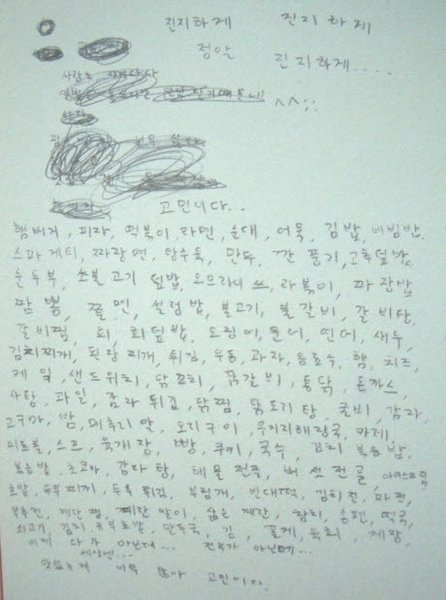 진지하게 진리하게
정말 진리하게....
^^;;
고민니다..
햄버거, 피자, 떡볶이, 라면, 순대, 어묵, 김밥, 비빔밥
스파게티, 짜장면, 탕수육, 만두, 깐풍기, 고륵덮밥,
순두부, 소불고기덮밥, 오므라이스, 라볶이, 짜장밥
짬뽕, 쫄면, 설렁탕, 불고기, 불갈비, 갈비탕
갈비찜, 회, 회덮밥, 오징어, 문어, 연어, 새우,
김치찌개, 된장찌개, 튀김, 우동, 과자, 음료수, 햄, 치즈
케잌, 샌드위치, 닭꼬치, 닭갈비, 통닭, 돈까스
사탕, 과일, 감자튀김, 닭찜, 닭도리탕, 굴비, 감자,
고구마, 밤, 메추리알, 오리구이, 우거지해장국, 카레,
미트볼, 스프, 육개장, 빵, 쿠키, 국수, 김치볶음밥,
볶음밥, 초코파, 감자탕, 해물전골, 버섯전골, 아이스크림
초밥, 두부찌개, 두부튀김, 부침개, 빈대떡, 김치전, 파전,
부추전, 계란찜, 계란말이, 삶은계란, 참치, 송편, 떡국,
쇠고기, 김치, 유부초밥, 만두국, 김, 꽃게, 육회, 게장,
이게 다가 아닌데... 전부가 아닌데...
세상엔...
맛있는게 너무 많아 고민이..